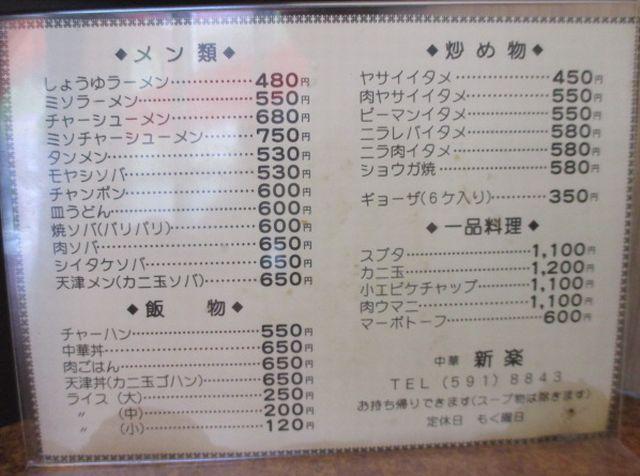 ◆メン類◆
しょうゆラーメン…………480円
ミソラーメン……………550円
チャーシューメン…………680円
ミソチャーシューメン………750円
タンメン…………………530円
モヤシソバ………………530円
チャンポン………………600円
皿うどん…………………600円
焼ソバ(パリパリ)…………600円
肉ソバ……………………650円
シイタケソバ……………650円
天津メン(カニ玉ソバ)……650円
◆飯 物◆
チャーハン………………550円
中華丼……………………650円
肉ごはん…………………650円
天津丼(カニ玉ゴハン)……650円
ライス(大)………………250円
〃 (中)………………200円
〃 (小)………………120円
◆炒め物◆
ヤサイイタメ……………450円
肉ヤサイイタメ…………550円
ピーマンイタメ…………550円
ニラレバイタメ…………580円
ニラ肉イタメ……………580円
ショウガ焼………………580円
ギョーザ(6ケ入り)………350円
◆一品料理◆
スブタ……………………1,100円
カニ玉……………………1,200円
小エビケチャップ………1,100円
肉ウマニ…………………1,100円
マーボトーフ……………600円
中華 新楽
TEL(591)8843
お持ち帰りできます(スープ物は除きます)
定休日 もく曜日